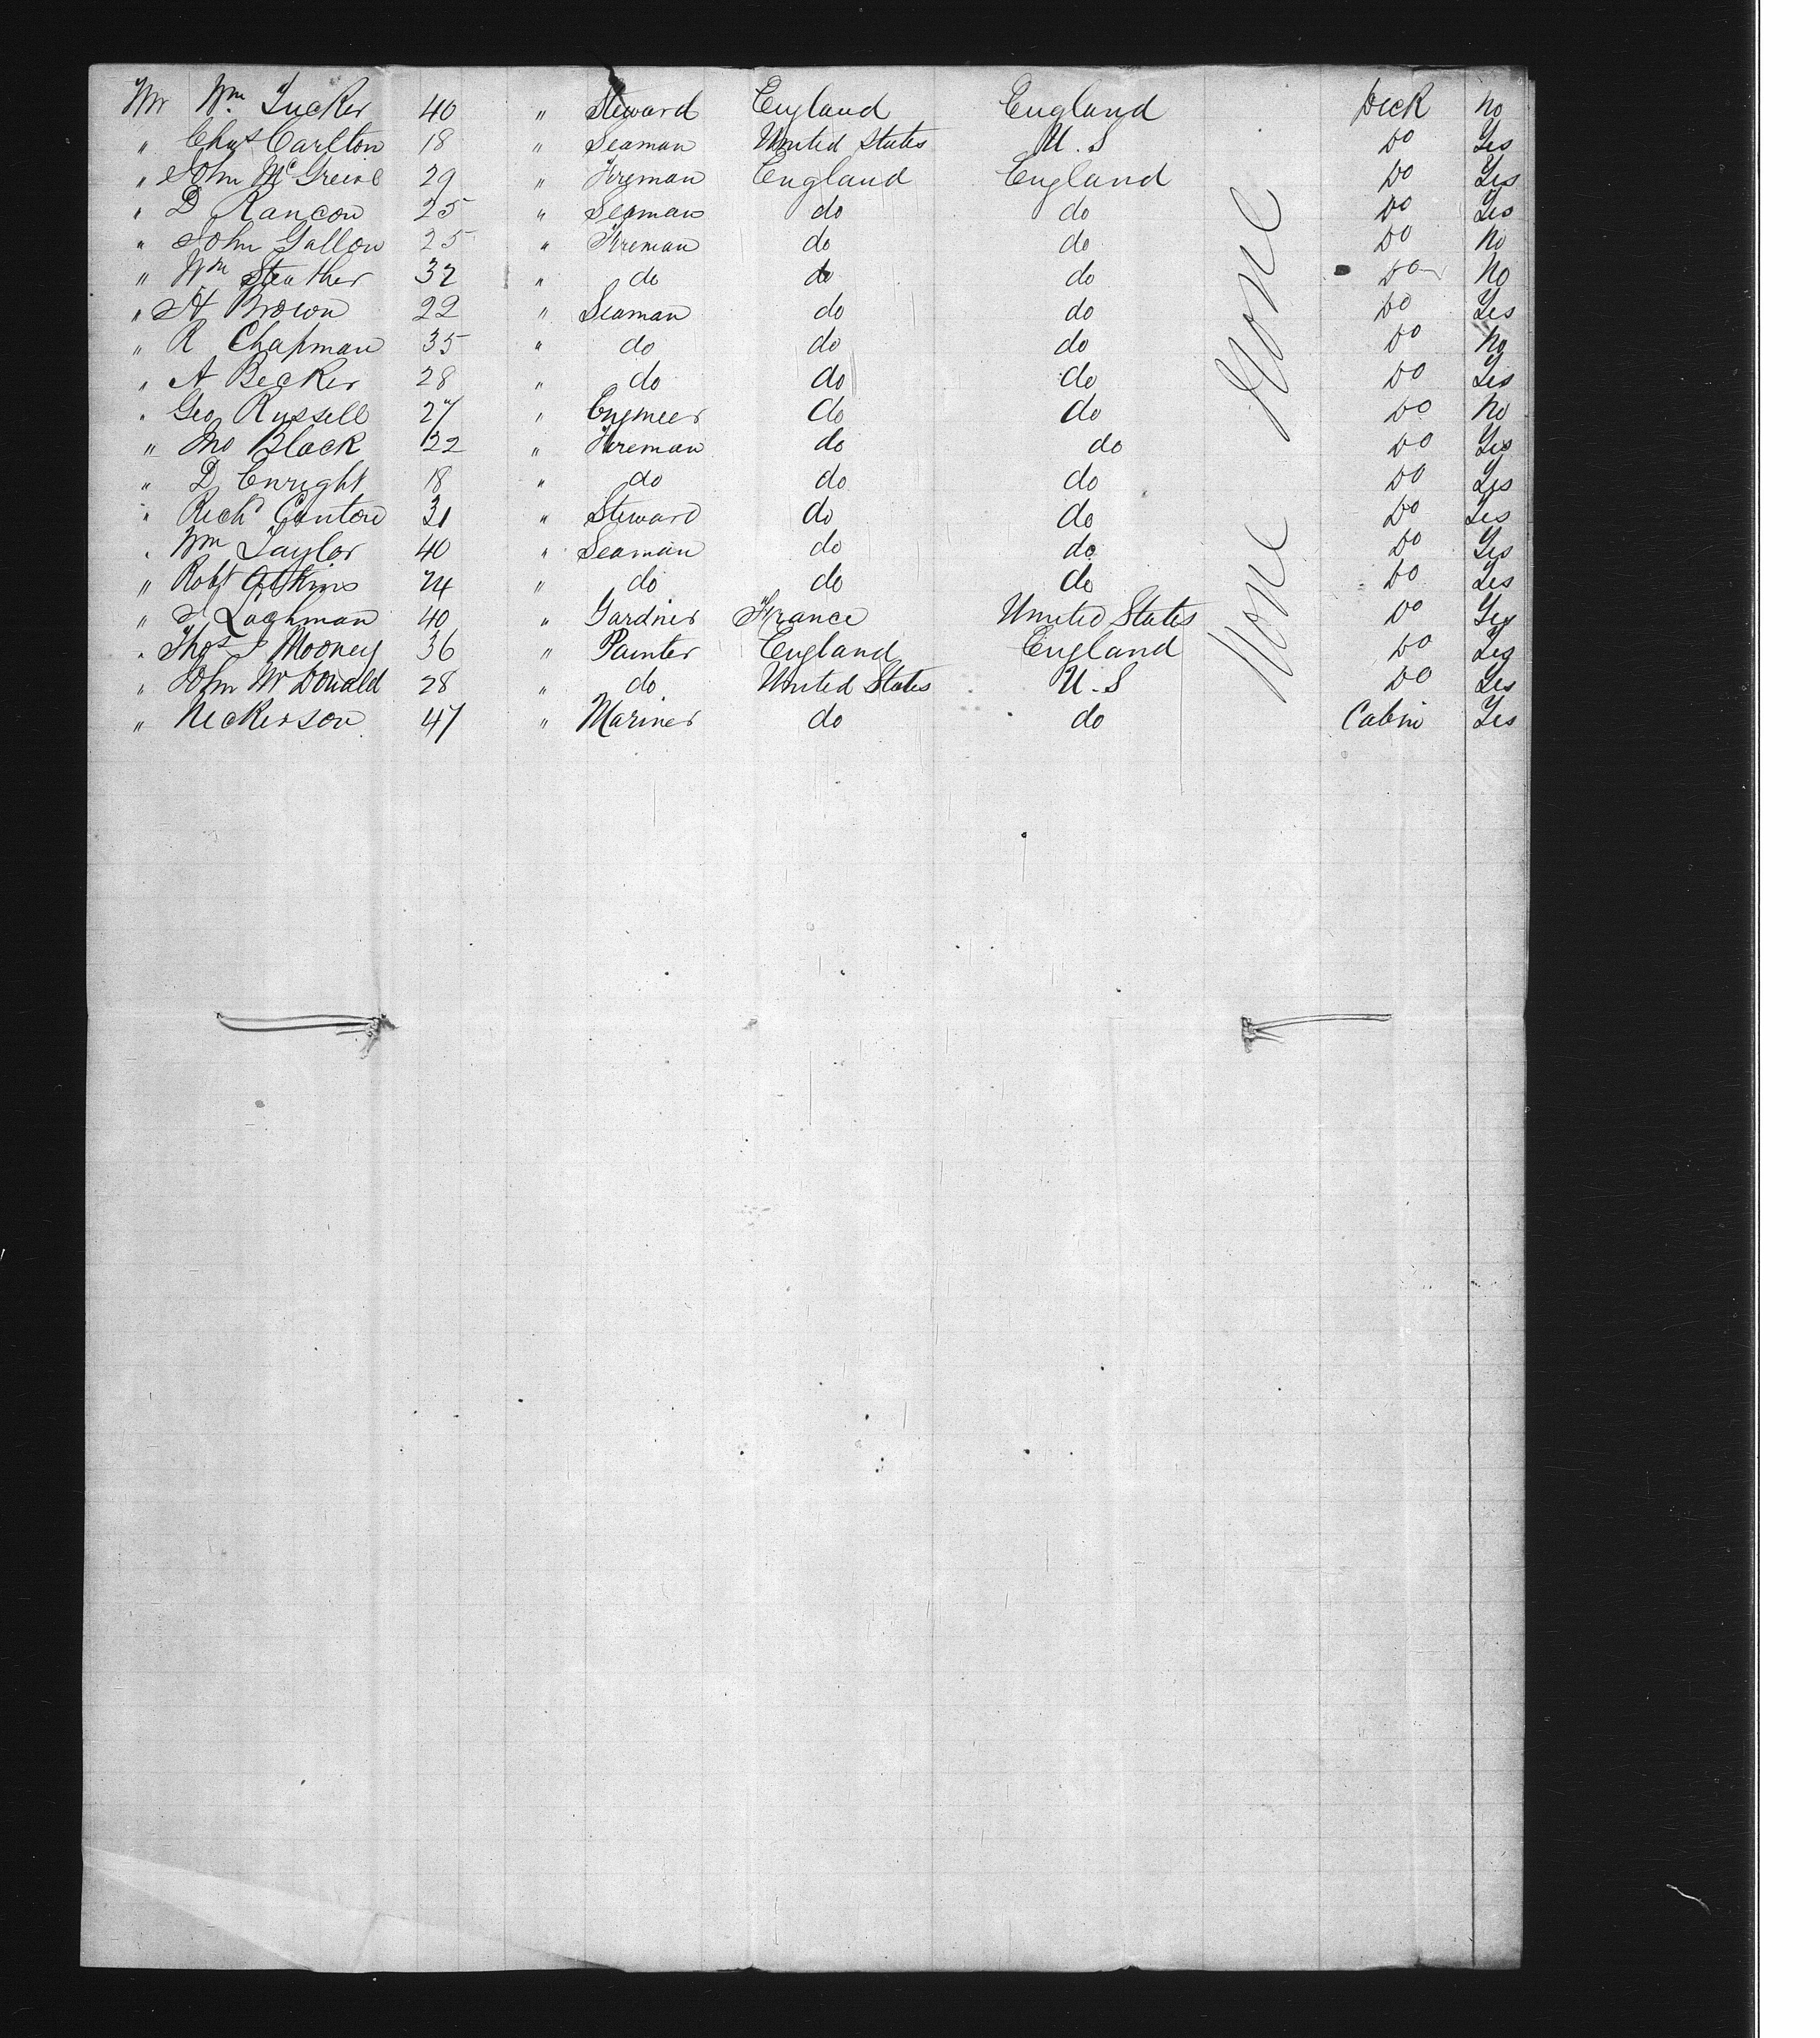 Mr Wm Tucker 40 " Steward England England Deck No
" Chas Carlton 18 " Seaman United States U.S Do Yes
" John McGreive 29 " Fireman England England Do Yes
" D Rancon 25 " Seaman do do Do Yes
" John Gallon 25 " Fireman do do Do No
" Wm Steather 32 " do do do Do No
" H Brown 22 " Seaman do do Do Yes
" R Chapman 35 " do do do Do No
" A Becker 28 " do do do Do Yes
" Geo Russell 27 " Engineer do do Do No
" Jno Black 22 " Fireman do do Do Yes
" D Enright 18 " do do do Do Yes
" Richd Canton 31 " Steward do do Do Yes
" Wm Taylor 40 " Seaman do do Do Yes
" Robt Atkins 24 " do do do Do Yes
" Laghman 40 " Gardner France United States Do Yes
" Thos J Mooney 36 " Painter England England Do Yes
" John McDonald 28 " do United States U.S Do Yes
" Neckerson 47 " Mariner do do Cabin Yes
None None